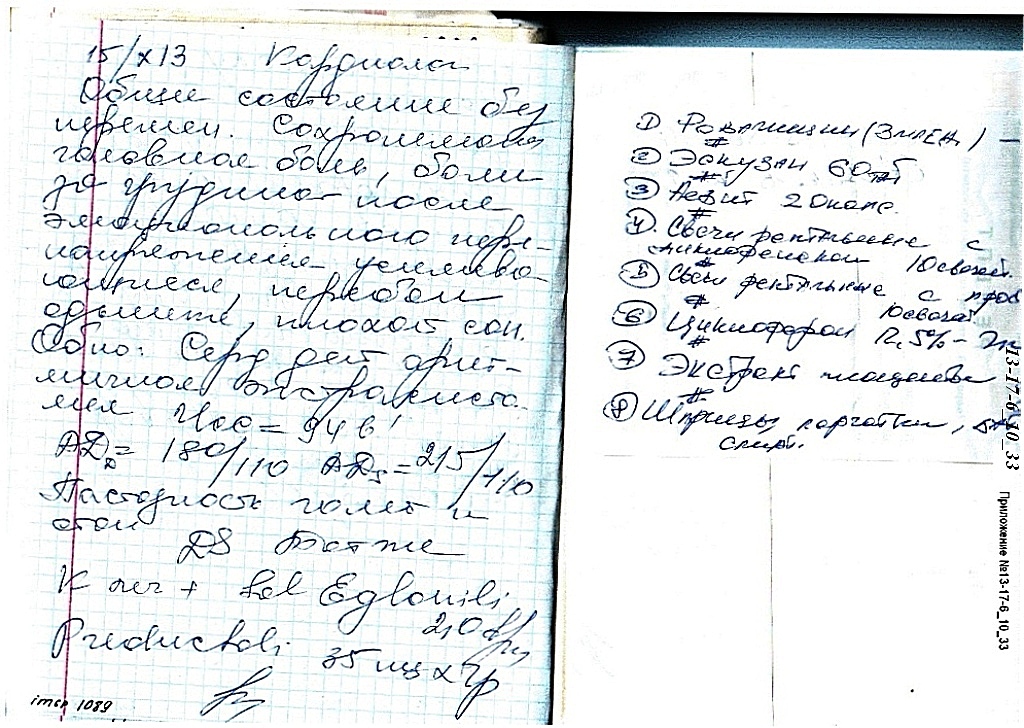 15/X13 Кардиолог
Общее состояние без
перемен. Сохраняются
головная боль, боли
за грудиной после
эмоционального пере-
напряжения усилива-
ющиеся, перебои
одышка, плохой сон.
Об-но: Серд деят арит-
мичная экстрасисто-
лия ЧСС = 94 в 1'
АДd = 180/110 АДs = 215/110
Пастозность голеней и
стоп
DS тот же
К леч + Sol Eglonili
2,0 в/м
Preductali 35 мг х 2р
imcp 1089
1. Ровамицин (3 млн ЕД)
2 Эскузан 60 таб
3 Аевит 20 капс.
4. Свечи ректальные с
диклофенаком 10 свечей.
5 Свечи ректальные с
10 свечей
6 Циклоферон 12,5% - 2
7 Экстракт плаценты
8 Шприцы перчатки,
спирт.
13-17-6_10_33
Приложение №13-17-6_10_33